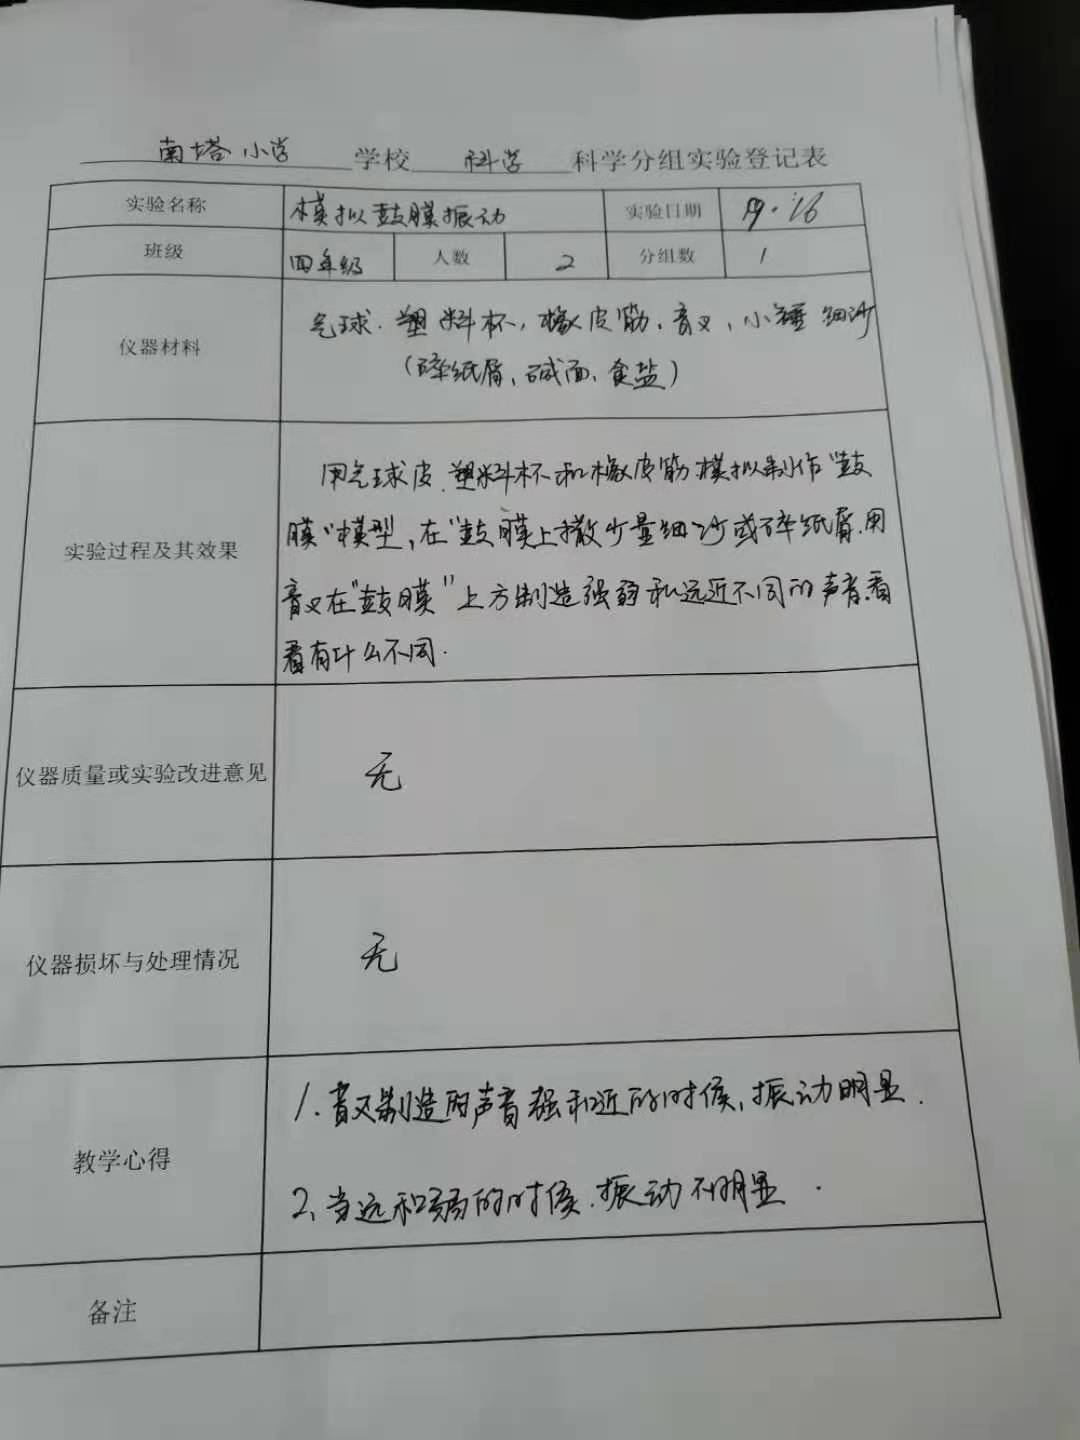 南塔小学 学校 科学 科学分组实验登记表
实验名称 模拟鼓膜振动 实验日期
班级 四年级 人数 2 分组数 1
仪器材料
气球. 塑料杯, 橡皮筋, 音叉, 小锤 细沙
(碎纸屑, 碱面, 食盐)
实验过程及其效果
用气球皮、塑料杯和橡皮筋模拟制作“鼓
膜”模型, 在“鼓膜上撒少量细沙或碎纸屑.用
音叉在“鼓膜”上方制造强弱和远近不同的声音.看
看有什么不同.
仪器质量或实验改进意见 无
仪器损坏与处理情况 无
教学心得
1. 音叉制造的声音强和近的时候, 振动明显.
2、当远和弱的时候.振动不明显.
备注